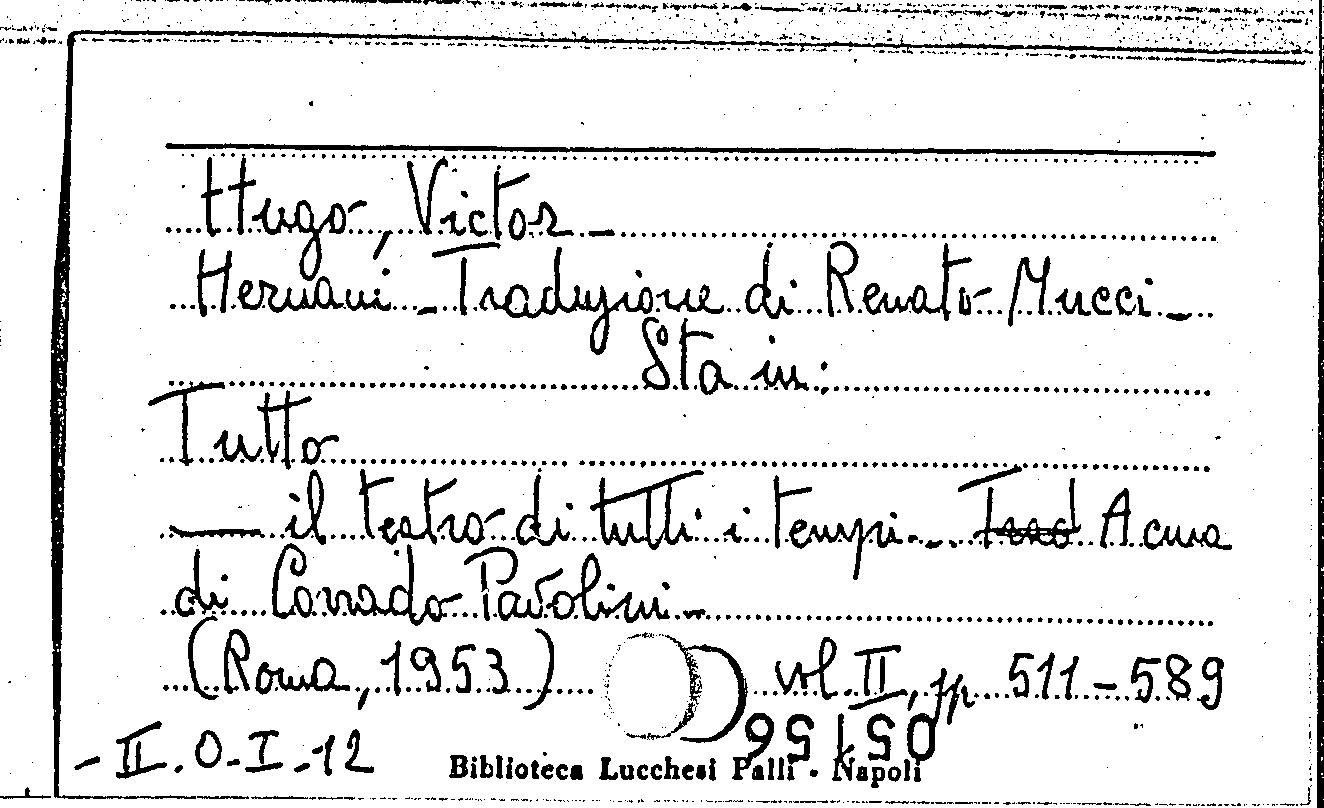 Hugo, Victor -
Hernani - Traduzione di Renato Mucci -
Sta in:
Tutto
—— il teatro di tutti i tempi - Trad A cura
di Corrado Pavolini -
(Roma, 1953) vol. II, pp 511-589
- II. O-I-12
Biblioteca Lucchesi Palli - Napoli
05156